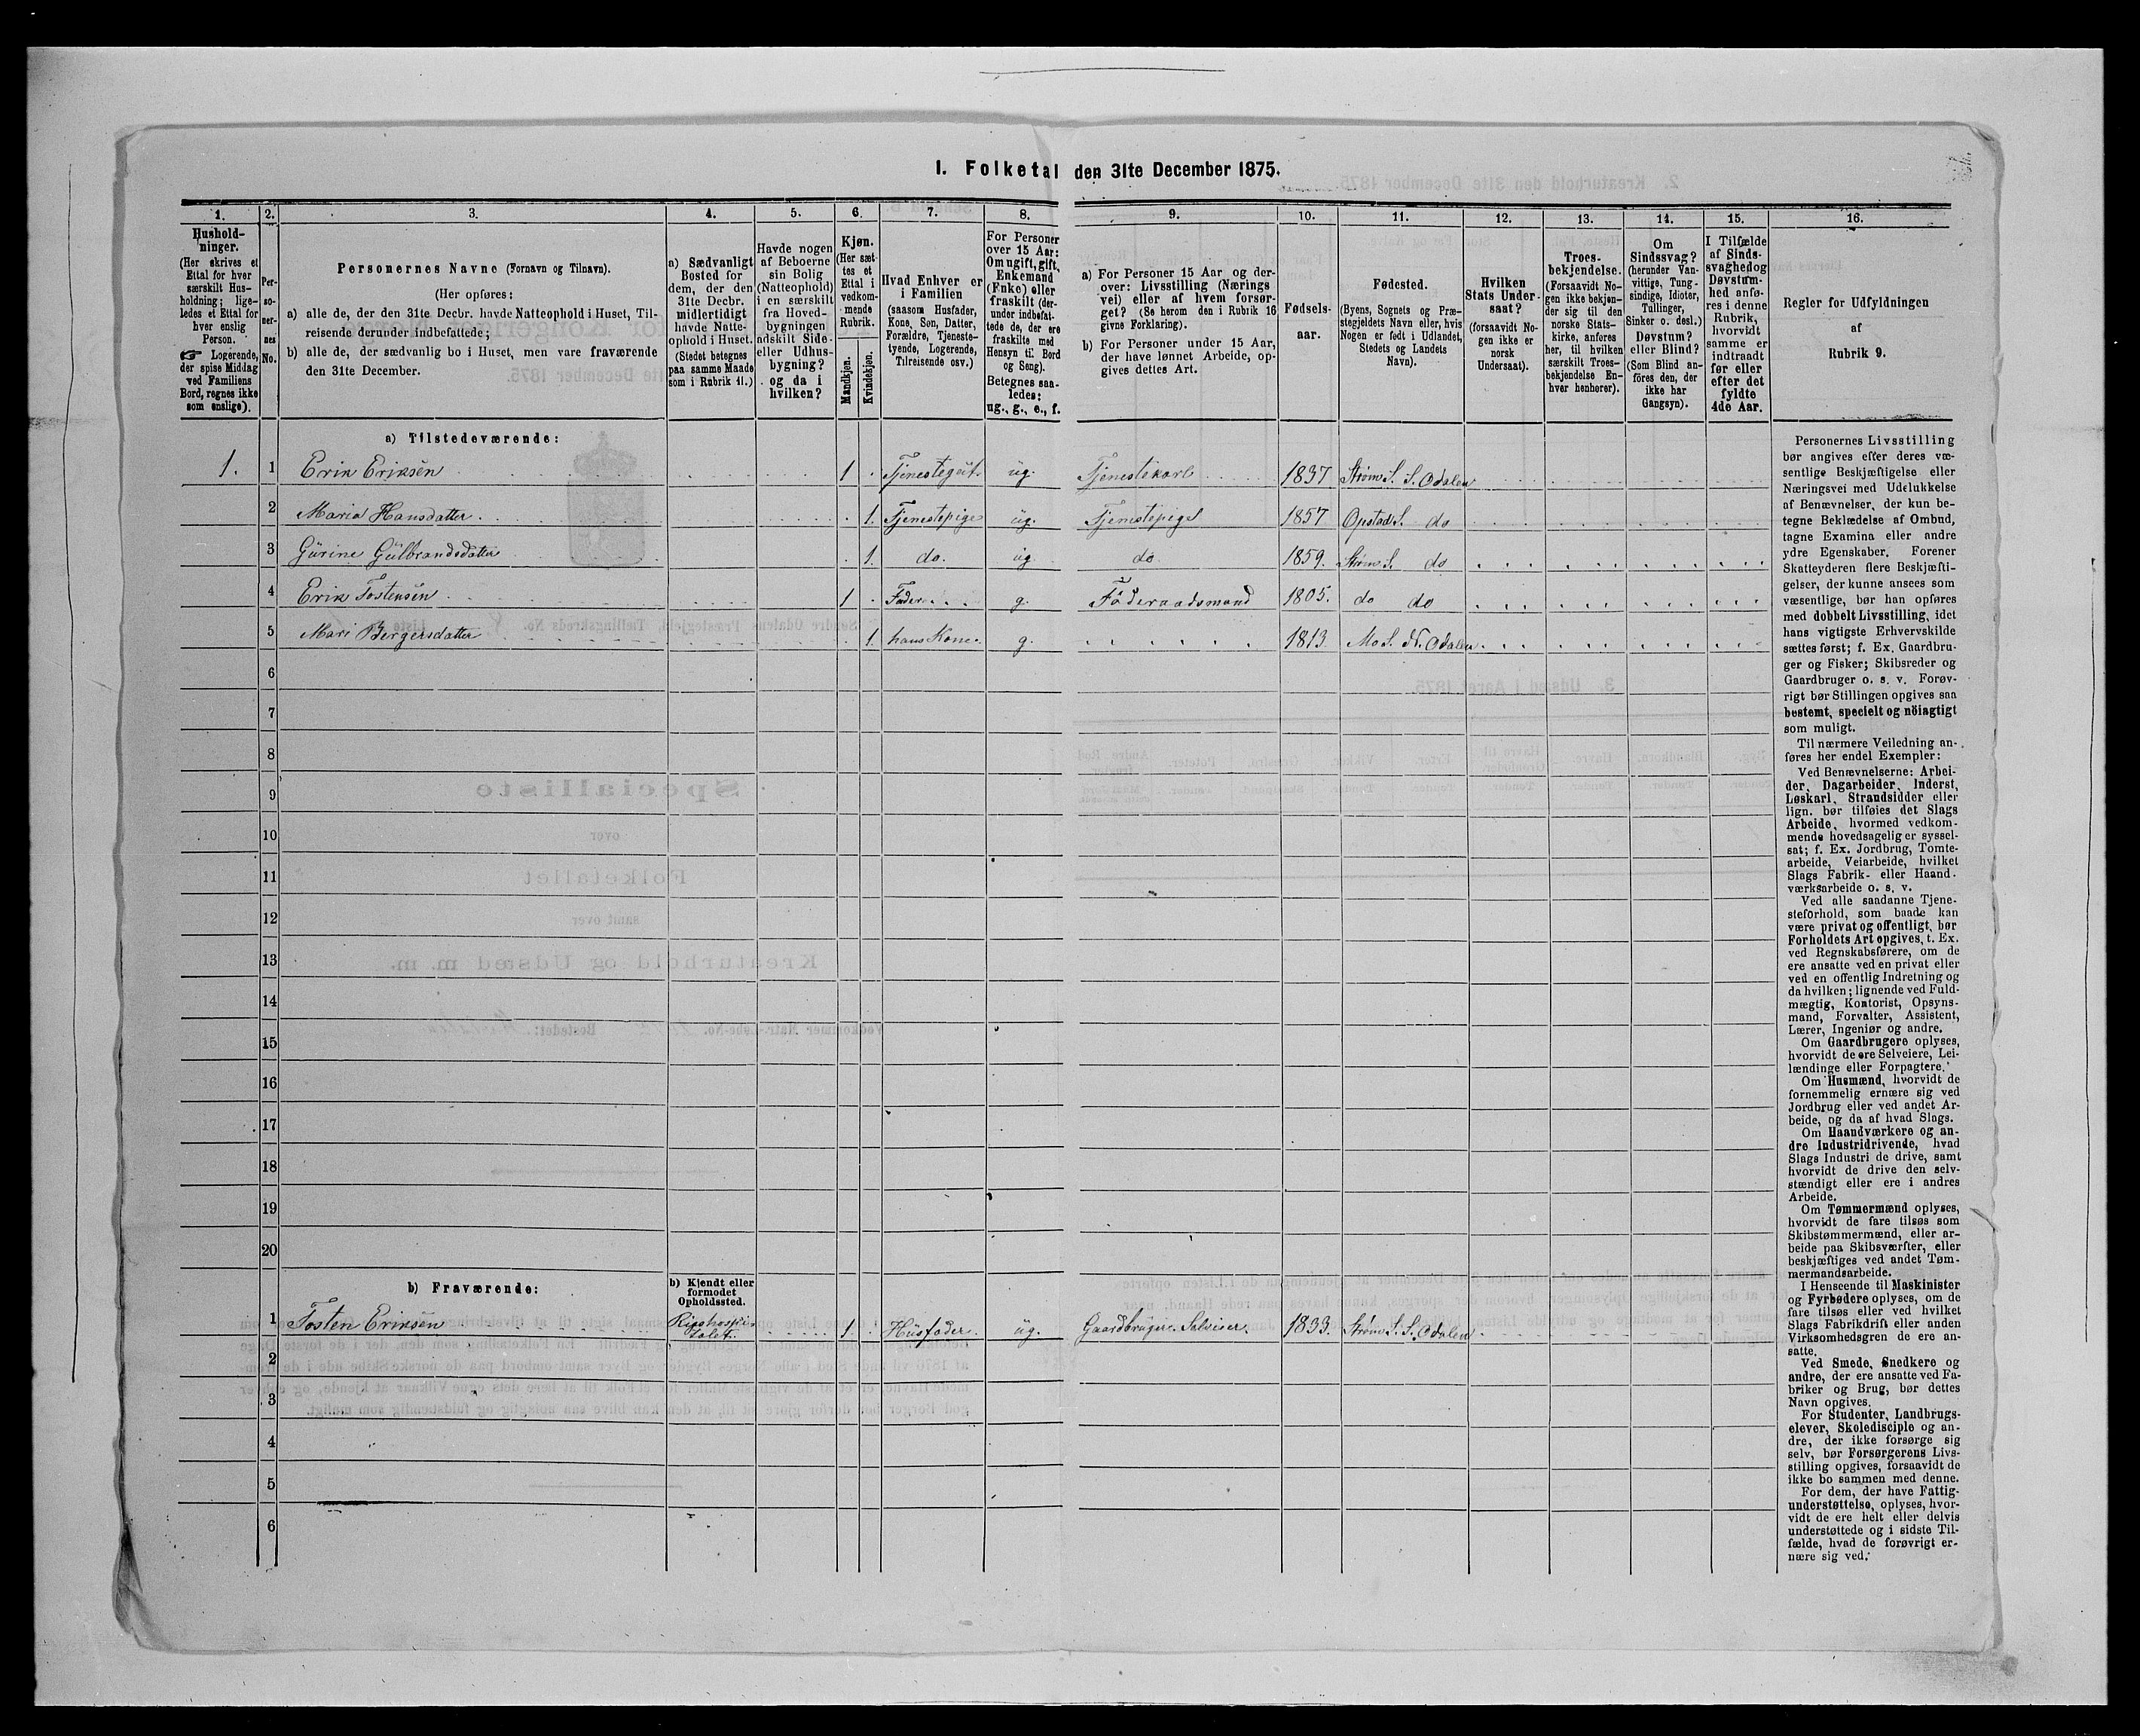 I. Folketal den 31te December 1875.
1.
2.
3.
4.
5.
6.
7.
8.
9.
10.
11.
12.
13.
14.
15.
16.
Hushold-
ninger.
(Her skrives et
Ettal for hver
særskilt Hus-
holdning; lige-
ledes et Ettal for
hver enslig
Person.
☞ Logerende,
der spise Middag
ved Familiens
Bord, regnes ikke
som enslige).
Per-
so-
ner-
nes
No.
Personernes Navne (Fornavn og Tilnavn).
(Her opføres:
a) alle de, der den 31te Decbr. havde Natteophold i Huset, Til-
reisende derunder indbefattede;
b) alle de, der sædvanlig bo i Huset, men vare fraværende
den 31te December.
a) Sædvanligt
Bosted for
dem, der den
31te Decbr.
midlertidigt
havde Natte-
ophold i Huset.
(Stedet betegnes
paa samme Maade
som i Rubrik 11.)
Havde nogen
af Beboerne
sin Bolig
(Natteophold)
i en særskilt
fra Hoved-
bygningen
adskilt Side-
eller Udhus-
bygning?
og da i
hvilken?
Kjøn.
(Her sæt-
tes et
Ettal i
vedkom-
mende
Rubrik.
Mandkjøn.
Kvindekjøn.
Hvad Enhver er
i Familien
(saasom Husfader,
Kone, Søn, Datter,
Forældre, Tjeneste-
tyende, Logerende,
Tilreisende osv.)
For Personer
over 15 Aar:
Om ugift, gift,
Enkemand
(Enke) eller
fraskilt (der-
under indbefat-
tede de, der ere
fraskilte med
Hensyn til Bord
og Seng).
Betegnes saa-
ledes:
ug., g., e., f.
a) For Personer 15 Aar og der-
over: Livsstilling (Nærings
vei) eller af hvem forsør-
get? (Se herom den i Rubrik 16
givne Forklaring).
b) For Personer under 15 Aar,
der have lønnet Arbeide, op-
gives dettes Art.
Fødsels-
aar.
Fødested.
(Byens, Sognets og Præ-
stegjeldets Navn eller, hvis
Nogen er født i Udlandet,
Stedets og Landets
Navn).
Hvilken
Stats Under-
saat?
(forsaavidt No-
gen ikke er
norsk
Undersaat).
Troes-
bekjendelse.
(Forsaavidt No-
gen ikke bekjen-
der sig til den
norske Stats-
kirke, anføres
her, til hvilken
særskilt Troes-
bekjendelse En-
hver henhører).
Om
Sindssvag?
(herunder Van-
vittige, Tung-
sindige, Idioter,
Tullinger,
Sinker o. desl.)
Døvstum?
eller Blind?
(Som Blind an-
føres den, der
ikke har
Gangsyn).
I Tilfælde
af Sinds-
svaghed og
Døvstum-
hed anfø-
res i denne
Rubrik,
hvorvidt
samme er
indtraadt
før eller
efter det
fyldte
4de Aar.
Regler for Udfyldningen
af
Rubrik 9.
a) Tilstedeværende:
1. 1 Erik Eriksen 1 Tjenestegut ug. Tjenestekarl 1837 Strøm S. S. Odalen
2 Maria Hansdatter 1. Tjenestepige ug. Tjenestepige 1857 Opstad S. do
3 Gurine Gulbrandsdatter 1. do. ug do. 1859. Strøm S. do
4 Erik Tostensen 1 Fader g. Føderaadsmand 1805. do do
5 Mari Bergersdatter 1. hans Kone g. 1813 Mo S. N. Odalen
6
7
8
9
10
11
12
13
14
15
16
17
18
19
20
b) Fraværende:
b) Kjendt eller
formodet
Opholdssted.
1 Tosten Eriksen Rigshospi-
talet 1 Husfader ug. Gaardbruger Selveier. 1833. Strøm S. S. Odalen
2
3
4
5
6
Personernes Livsstilling
bør angives efter deres væ-
sentlige Beskjæftigelse eller
Næringsvei med Udelukkelse
af Benævnelser, der kun be-
tegne Beklædelse af Ombud,
tagne Examina eller andre
ydre Egenskaber. Forener
Skatteyderen flere Beskjæfti-
gelser, der kunne ansees som
væsentlige, bør han opføres
med dobbelt Livsstilling, idet
hans vigtigste Erhvervskilde
sættes først; f. Ex. Gaardbru-
ger og Fisker; Skibsreder og
Gaardbruger o. s. v. Forøv-
rigt bør Stillingen opgives saa
bestemt, specielt og nöiagtigt
som muligt.
Til nærmere Veiledning an-
føres her endel Exempler:
Ved Benævnelserne: Arbei-
der, Dagarbeider, Inderst,
Løskarl, Strandsidder eller
lign. bør tilføies det Slags
Arbeide, hvormed vedkom-
mende hovedsagelig er syssel-
sat; f. Ex. Jordbrug, Tomte-
arbeide, Veiarbeide, hvilket
Slags Fabrik- eller Haand-
værksarbeide o. s. v.
Ved alle saadanne Tjene-
steforhold, som baade kan
være privat og offentligt, bør
Forholdets Art opgives, t. Ex.
ved Regnskabsførere, om de
ere ansatte ved en privat eller
ved en offentlig Indretning og
da hvilken; lignende ved Fuld-
mægtig, Kontorist, Opsyns-
mand, Forvalter, Assistent,
Lærer, Ingeniør og andre.
Om Gaardbrugere oplyses,
hvorvidt de ere Selveiere, Lei-
lændinge eller Forpagtere.
Om Husmænd, hvorvidt de
fornemmelig ernære sig ved
Jordbrug eller ved andet Ar-
beide, og da af hvad Slags.
Om Haandværkere og an-
dre Industridrivende, hvad
Slags Industri de drive, samt
hvorvidt de drive den selv-
stændigt eller ere i andres
Arbeide.
Om Tømmermænd oplyses,
hvorvidt de fare tilsøs som
Skibstømmermænd, eller ar-
beide paa Skibsværfter, eller
beskjæftiges ved andet Tøm-
mermandsarbeide.
I Henseende til Maskinister
og Fyrbødere oplyses, om de
fare tilsøs eller ved hvilket
Slags Fabrikdrift eller anden
Virksomhedsgren de ere an-
satte.
Ved Smede, Snedkere og
andre, der ere ansatte ved Fa-
briker og Brug, bør dettes
Navn opgives.
For Studenter, Landbrugs-
elever, Skoledisciple og an-
dre, der ikke forsørge sig
selv, bør Forsørgerens Livs-
stilling opgives, forsaavidt de
ikke bo sammen med denne.
For dem, der have Fattig-
understøttelse, oplyses, hvor-
vidt de ere helt eller delvis
understøttede og i sidste Til-
fælde, hvad de forøvrigt er-
nære sig ved.